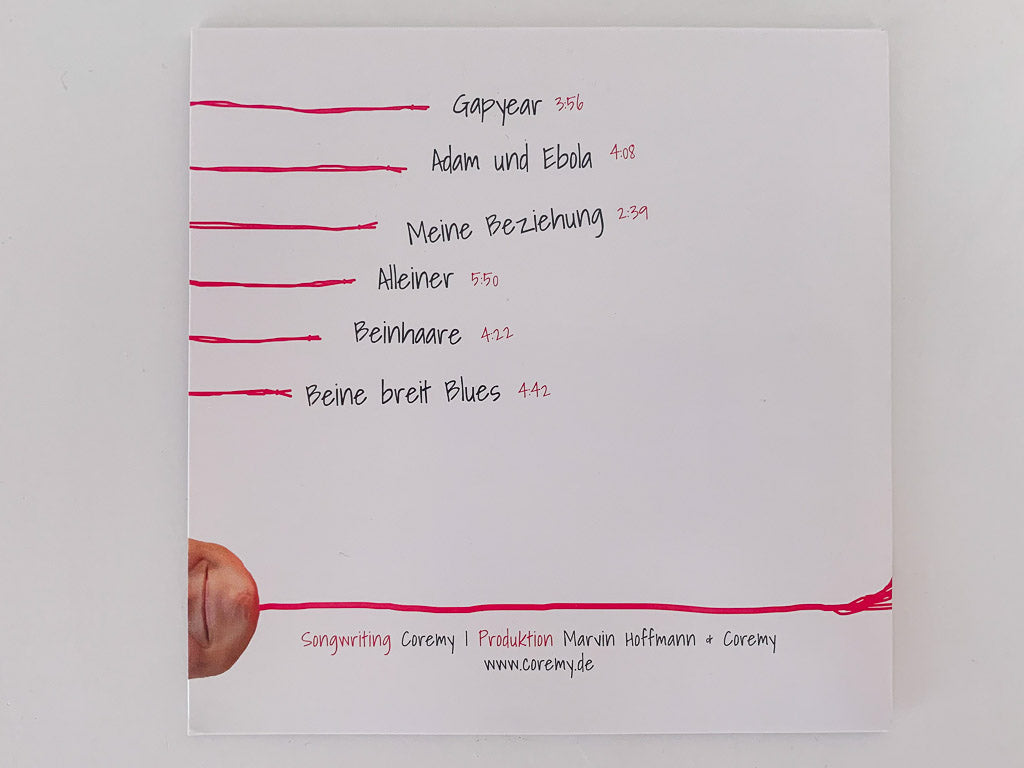 Gapyear 3:56
Adam und Ebola 4:08
Meine Beziehung 2:39
Alleiner 5:50
Beinhaare 4:22
Beine breit Blues 4:42
Songwriting Coremy | Produktion Marvin Hoffmann & Coremy
www.coremy.de